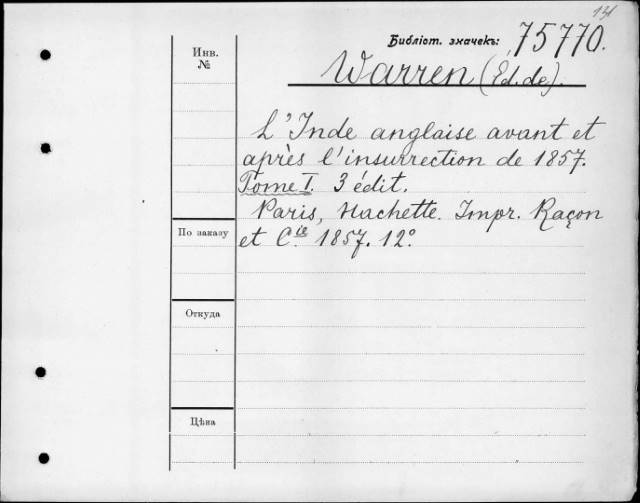 131
Библіот. значекъ: 75770.
Инв. №
Warren (Ed. de).
L'Inde anglaise avant et
après l'insurrection de 1857.
Tome I. 3 édit.
Paris, Hachette. Impr. Raçon
По заказу
et Cie. 1857. 12°.
Откуда
Цѣна